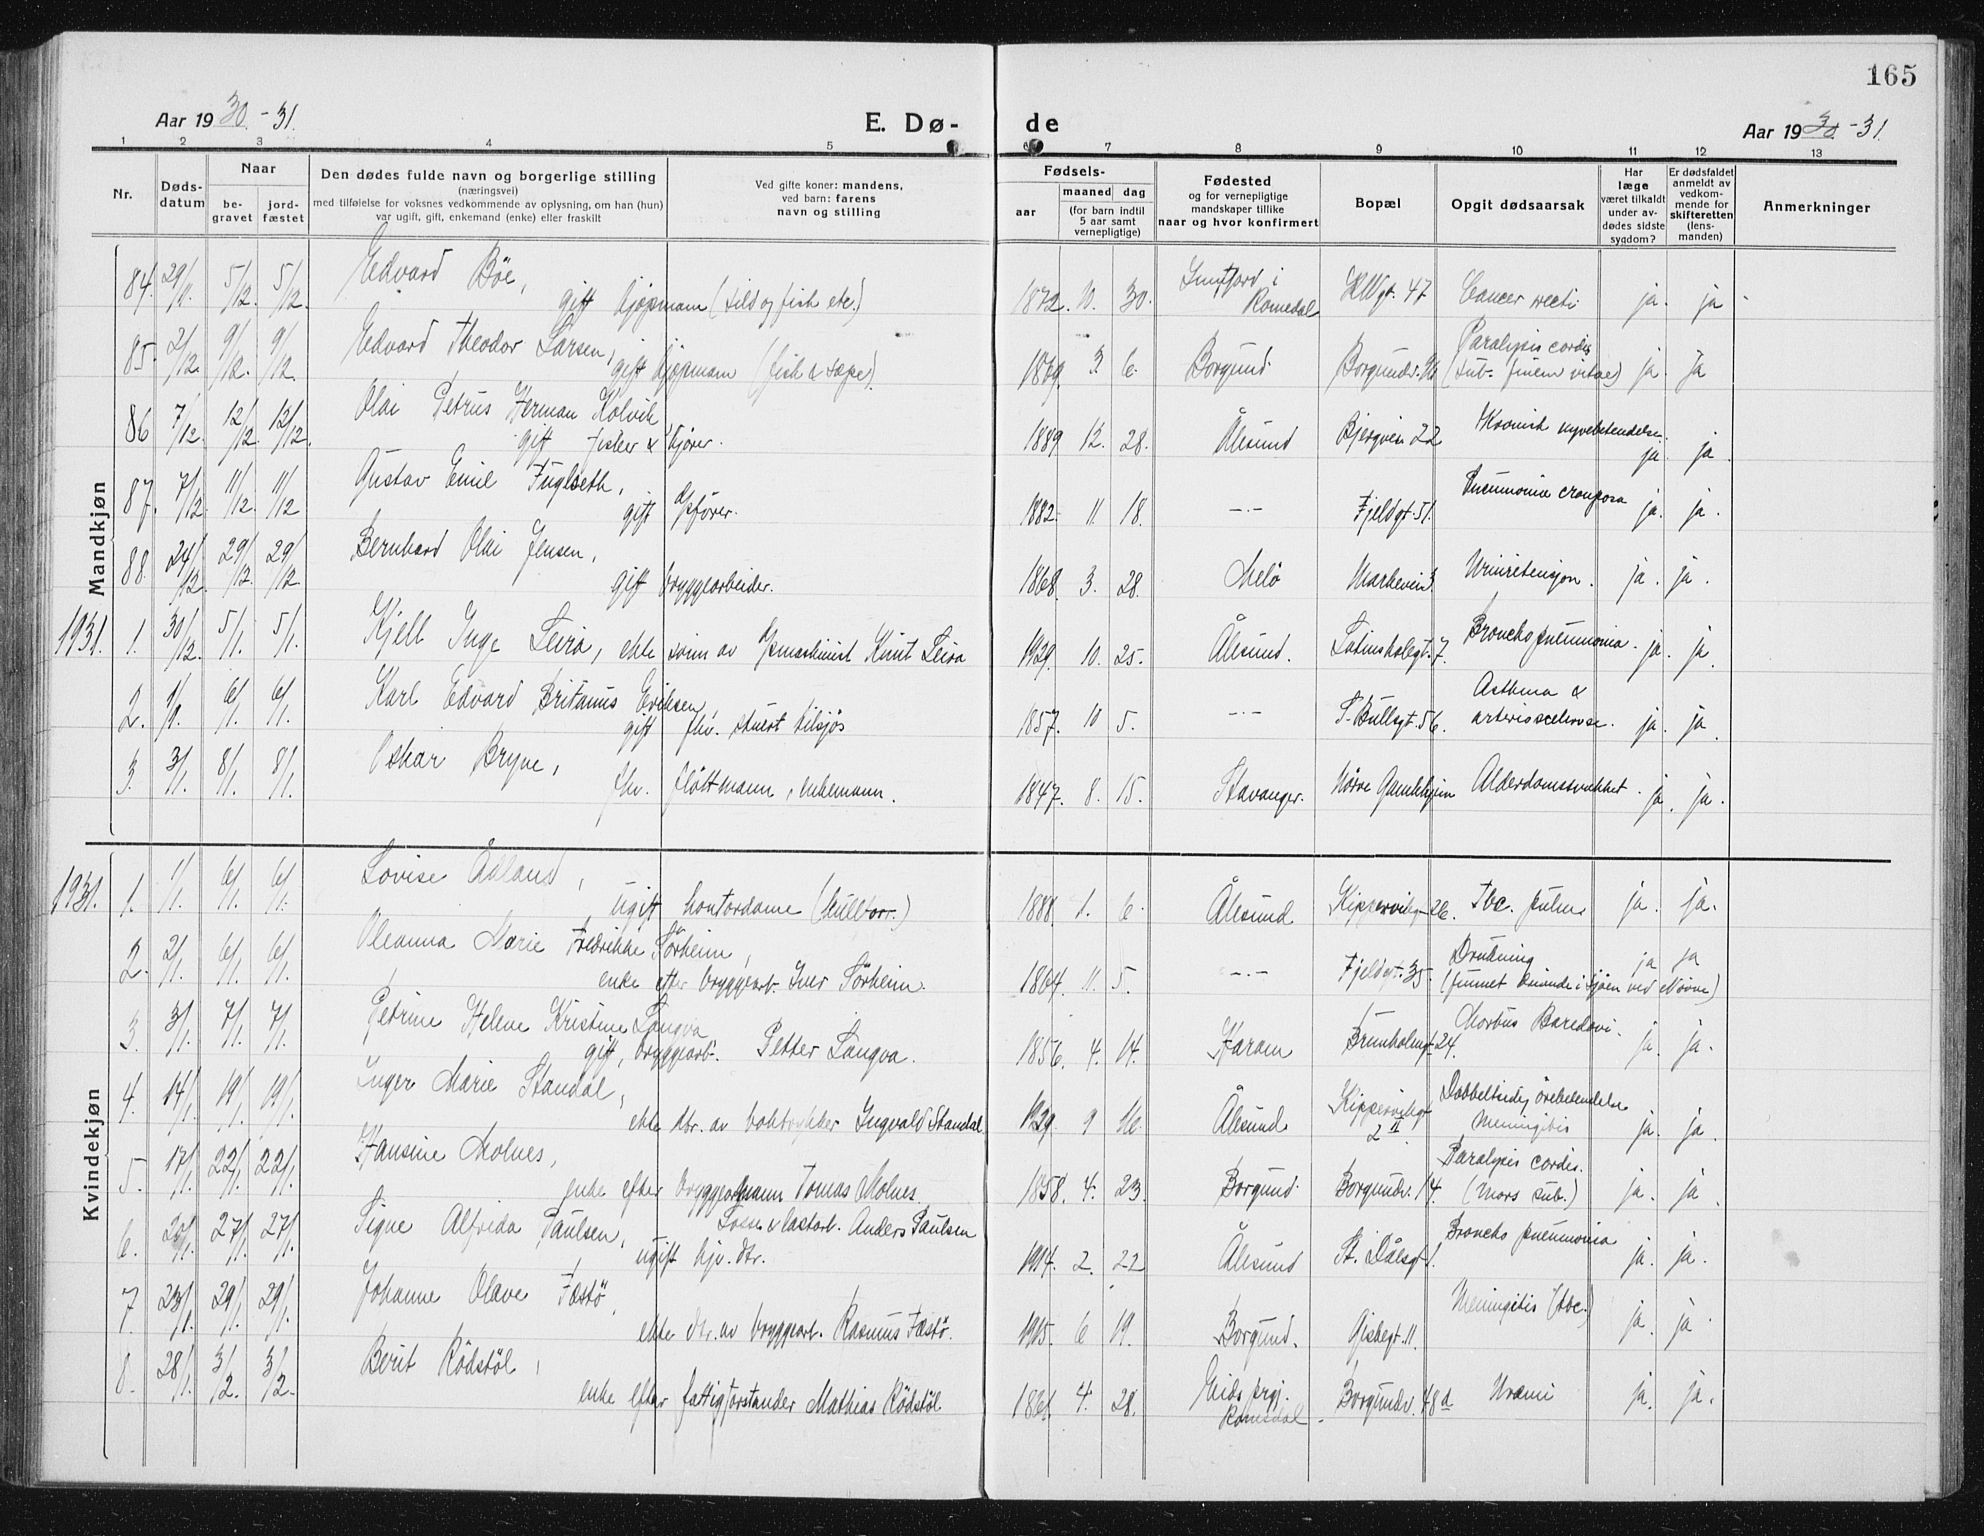 165
Aar 1930-31.
E. Dø-
de
Aar 1930-31.
1 2 3 4 5 6 7 8 9 10 11 12 13
Nr.
Døds-
datum
Naar
be-
gravet
jord-
fæstet
Den dødes fulde navn og borgerlige stilling
(næringsvei)
med tilføielse for voksnes vedkommende av oplysning, om han (hun)
var ugift, gift, enkemand (enke) eller fraskilt
Ved gifte koner: mandens,
ved barn: farens
navn og stilling
Fødsels-
aar
maaned dag
(for barn indtil
5 aar samt
vernepligtige)
Fødested
og for vernepligtige
mandskaper tillike
naar og hvor konfirmert
Bopæl
Opgit dødsaarsak
Har
læge
været tilkaldt
under av-
dødes sidste
sygdom?
Er dødsfaldet
anmeldt av
vedkom-
mende for
skifteretten
(lens-
manden)
Anmerkninger
Mandkjøn
84. 29/11 5/12. 5/12. Edvard Böe,
gift kjøpmann (sild og fisk etc.) 1872. 10. 30. Romsdal 47 Cancer recti ja. ja.
85. 2/12. 9/12. 9/12. Edvard Theodor Larsen,
gift kjøpmann (fisk & sæpe) 1869. 3. 6. Borgund. Paralysis cordis
(sub. finem vitae) ja. ja
86 7/12. 12/12. 12/12. Olai Petrus Herman Kolvik
gift fisker & kjører. 1889 12. 28. Ålesund Bjergvein 22 Kronisk nyrebetendelse. ja. ja.
87. 7/12 11/12. 11/12 Gustav Emil Fuglseth,
gift fører. 1882. 11. 18. -"- Fjeldgt. 51. Pneumonia crouposa ja. ja.
88. 24/12. 29/12. 29/12 Bernhard Olai Jensen,
gift bryggearbeider. 1868. 3. 28. Melö Urinretensjon. ja. ja.
1931. 1. 30/12. 5/1. 5/1. Kjell Inge Leira, ekte sønn av maskinist Knut Leira 1929. 10. 25. Ålesund. Latinskolegt. 7. Broncho pneumonia. ja. ja.
2. 1/1. 6/1. 6/1. Karl Edvard Britanus Eriksen,
gift fhv. stuert tilsjøs 1857. 10 5. -"- 56. Asthma &
arteriosclerose. ja. ja.
3. 3/1. 8/1. 8/1. Oskar Bryne,
fhv. fløttmann, enkemann. 1847. 8. 15. Stavanger. Nørve Gamlehjem Alderdomssvakhet. ja. ja.
Kvindekjøn
1931. 1. 1/1. 6/1. 6/1. Lovise Ådland,
ugift kontordame 1888. 1. 6. Ålesund 26. Tbc. pulm ja. ja.
2. 2/1. 6/1. 6/1. Oleanna Marie Fredrikke Sörheim,
enke efter bryggearb. Iver Sörheim. 1864. 11. 5. -"- Fjeldgt. 35. Drukning ja ja
(funnet druknede i sjøen ved Nørve)
3. 3/1. 7/1. 7/1. Petrine Helene Kristine Langva
gift, bryggearb. Petter Langva. 1856. 4. 14. Haram Brunholmgt 24. Morbus Basedovi. ja. ja.
4. 14/1. 19/1. 19/1. Inger Marie Standal,
ekte dtr. av boktrykker Ingvald Standal. 1929. 9 16. Ålesund Kippervikgt
2 II. Dobbeltsidig ørebetendelse
Meningitis ja. ja.
5. 17/1. 22/1. 22/1. Hansine Molnes,
enke efter Tomas Molnes. 1858. 4. 23. Borgund. Borgundv. 14. Paralysis cordis.
(Mors sub.) ja. ja
6. 27/1. 27/1. Signe Alfrida Paulsen,
Losse & lastarb. Anders Paulsen
ugift hjv. dtr. 1914. 2. 22 Ålesund Broncho pneumonia ja. ja.
7. 23/1. 29/1. 29/1. Johanne Olave Fæstö,
ekte dtr. av bryggearb. Rasmus Fæstö. 1915. 6 19. Borgund. 11. Meningitis (tbc.) ja. ja
8. 28/1. 3/2. 3/2. Berit Rödstöl,
enke efter fattigforstander Mathias Rödstöl 1861. 4. 28. Eids prgj.
Romsdal. Borgundv. 48a Uræmi ja. ja.